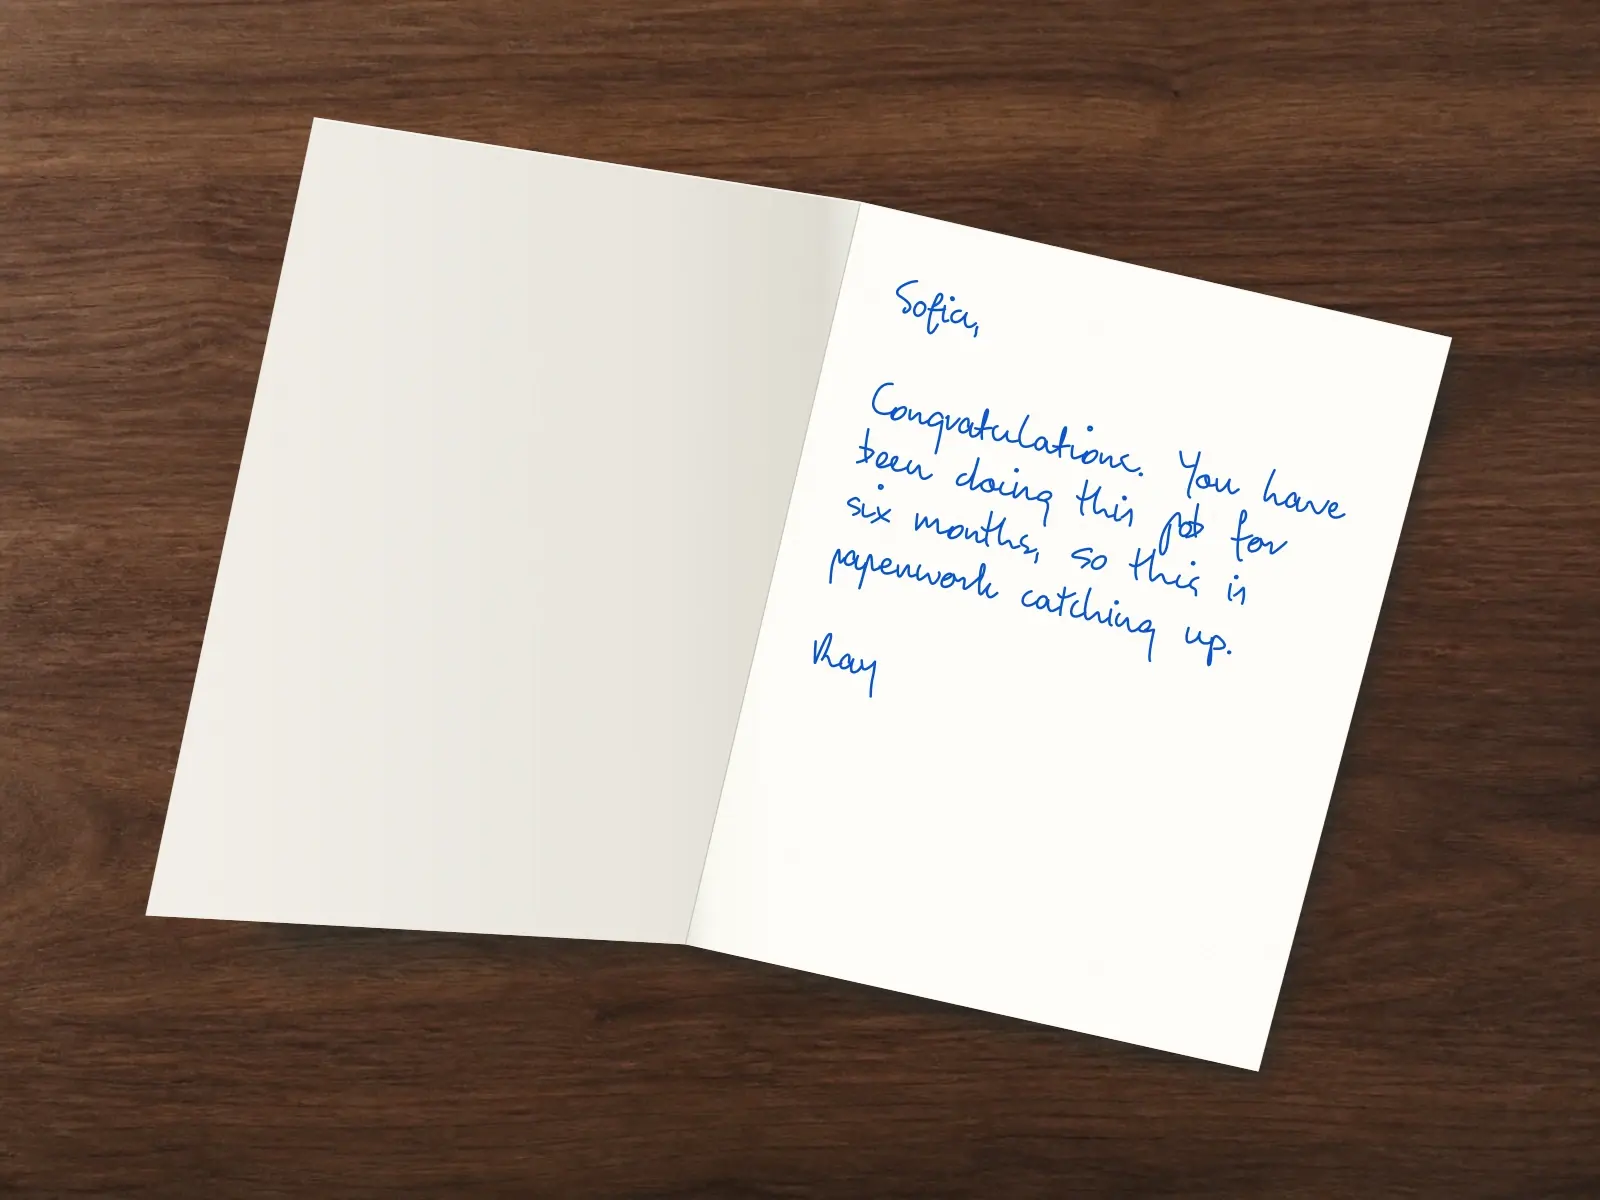 Sofia,
Congratulations. You have
been doing this job for
six months, so this is
paperwork catching up.
Ray